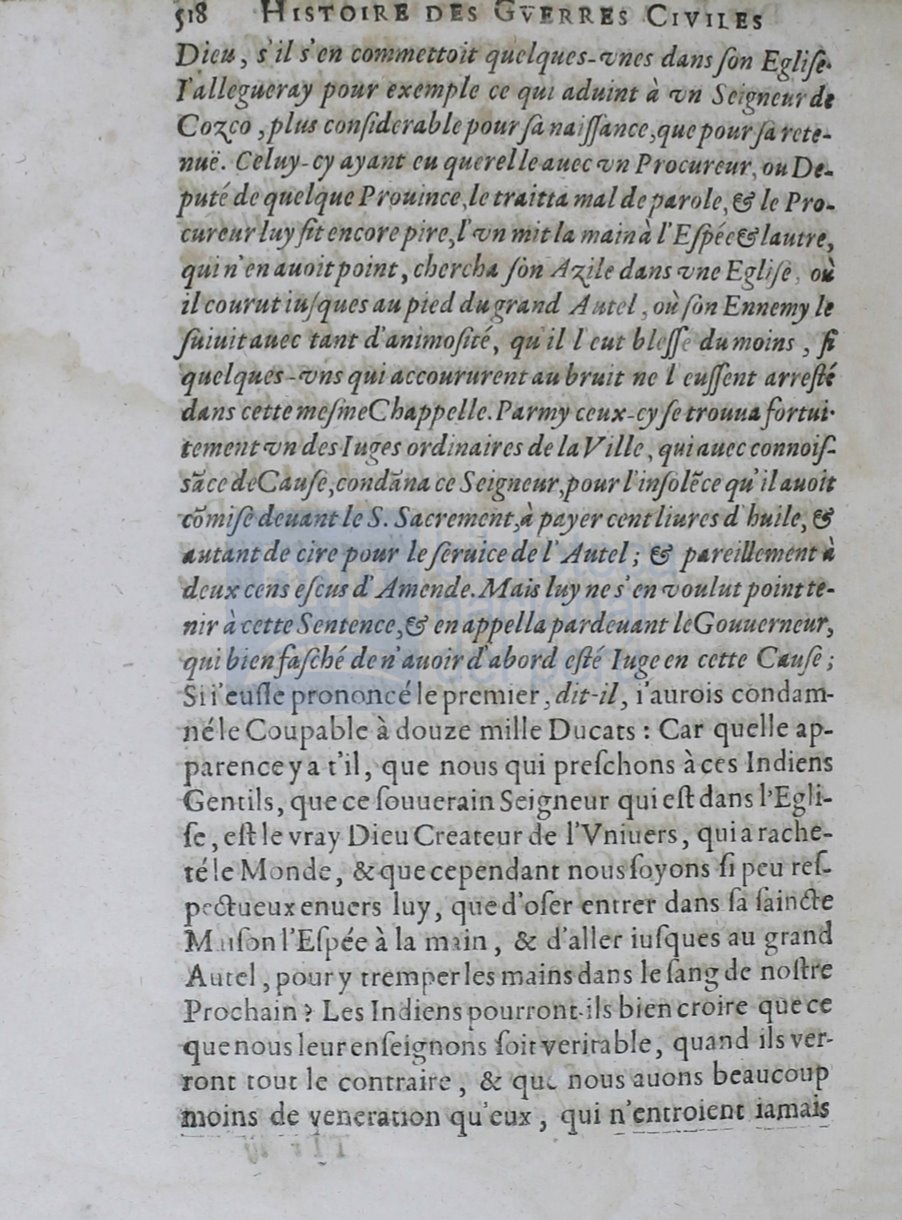 518 HISTOIRE DES GVERRES CIVILES
Dieu, s'il s'en commettoit quelques-vnes dans ſon Egliſe.
I'allegueray pour exemple ce qui aduint à vn Seigneur de
Cozco, plus conſiderable pour ſa naiſſance, que pour ſa rete-
nuë. Celuy-cy ayant eu querelle auec vn Procureur, ou De-
puté de quelque Prouince, le traitta mal de parole, & le Pro-
cureur luy fit encore pire, l'vn mit la main à l'Eſpée & lautre,
qui n'en auoit point, chercha ſon Azile dans vne Egliſe, où
il courut iuſques au pied du grand Autel, où ſon Ennemy le
ſuiuit auec tant d'animoſité, qu'il l'eut bleſſe du moins, ſi
quelques-vns qui accoururent au bruit ne l'euſſent arreſté
dans cette meſme Chappelle. Parmy ceux-cy ſe trouua fortui-
tement vn des Iuges ordinaires de la Ville, qui auec connoiſ-
sãce de Cauſe, condãna ce Seigneur, pour l'inſolẽce qu'il auoit
cõmiſe deuant le S. Sacrement, à payer cent liures d'huile, &
autant de cire pour le ſeruice de l'Autel; & pareillement à
deux cens eſcus d'Amende. Mais luy ne s'en voulut point te-
nir à cette Sentence, & en appella pardeuant le Gouuerneur,
qui bien faſché de n'auoir d'abord eſté Iuge en cette Cauſe;
Si i'euſſe prononcé le premier, dit-il, i'aurois condam-
né le Coupable à douze mille Ducats: Car quelle ap-
parence y a t'il, que nous qui preſchons à ces Indiens
Gentils, que ce ſouuerain Seigneur qui eſt dans l'Egli-
ſe, eſt le vray Dieu Createur de l'Vniuers, qui a rache-
té le Monde, & que cependant nous ſoyons ſi peu reſ-
pectueux enuers luy, que d'oſer entrer dans ſa ſaincte
Maiſon l'Eſpée à la main, & d'aller iuſques au grand
Autel, pour y tremper les mains dans le ſang de noſtre
Prochain? Les Indiens pourront-ils bien croire que ce
que nous leur enſeignons ſoit veritable, quand ils ver-
ront tout le contraire, & que nous auons beaucoup
moins de veneration qu'eux, qui n'entroient iamais